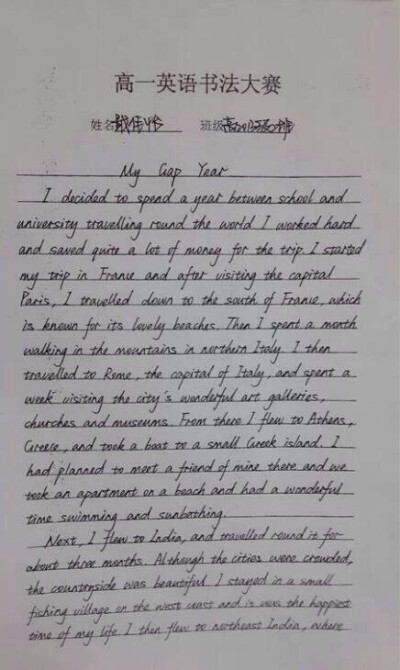 高一英语书法大赛
姓名 班级
My Gap Year
I decided to spend a year between school and
university travelling round the world I worked hard
and saved quite a lot of money for the trip I started
my trip in France and after visiting the capital
Paris, I travelled down to the south of France, which
is known for its lovely beaches. Then I spent a month
walking in the mountains in northern Italy I then
travelled to Rome, the capital of Italy, and spent a
week visiting the city's wonderful art galleries,
churches and museums. From there I flew to Athens,
Greece, and took a boat to a small Greek island. I
had planned to meet a friend of mine there and we
took an apartment on a beach and had a wonderful
time swimming and sunbathing.
Next, I flew to India, and travelled round it for
about three months. Although the cities were crowded,
the countryside was beautiful I stayed in a small
fishing village on the west coast and it was the happiest
time of my life I then flew to northeast India, where